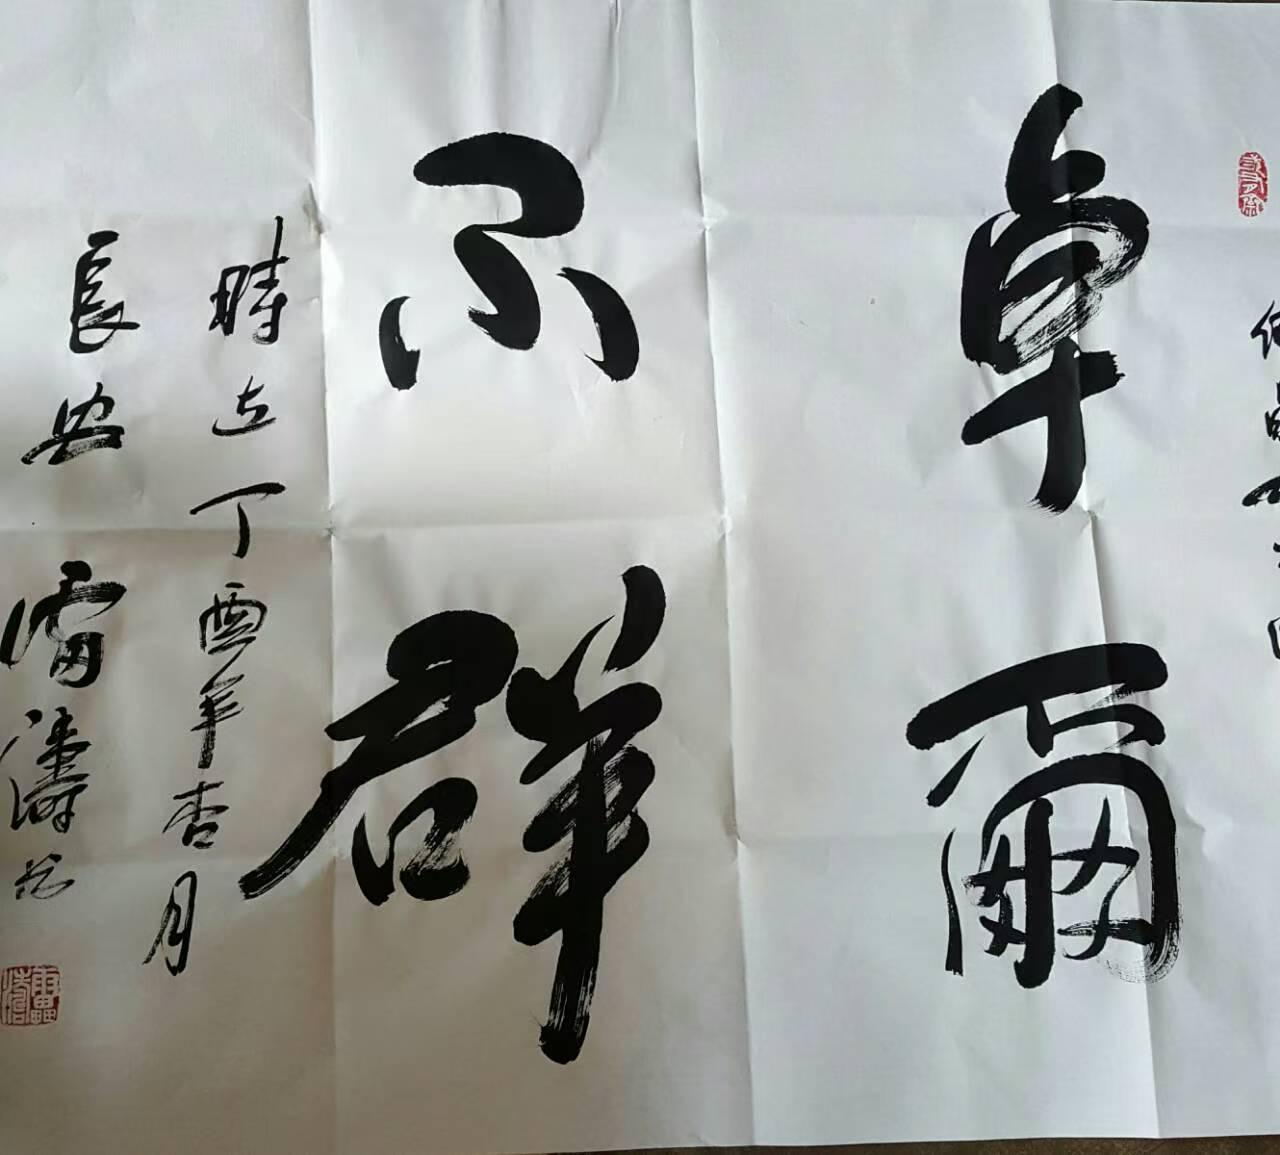 卓爾
不群
時在丁酉年杏月
長安雷濤書
雷濤